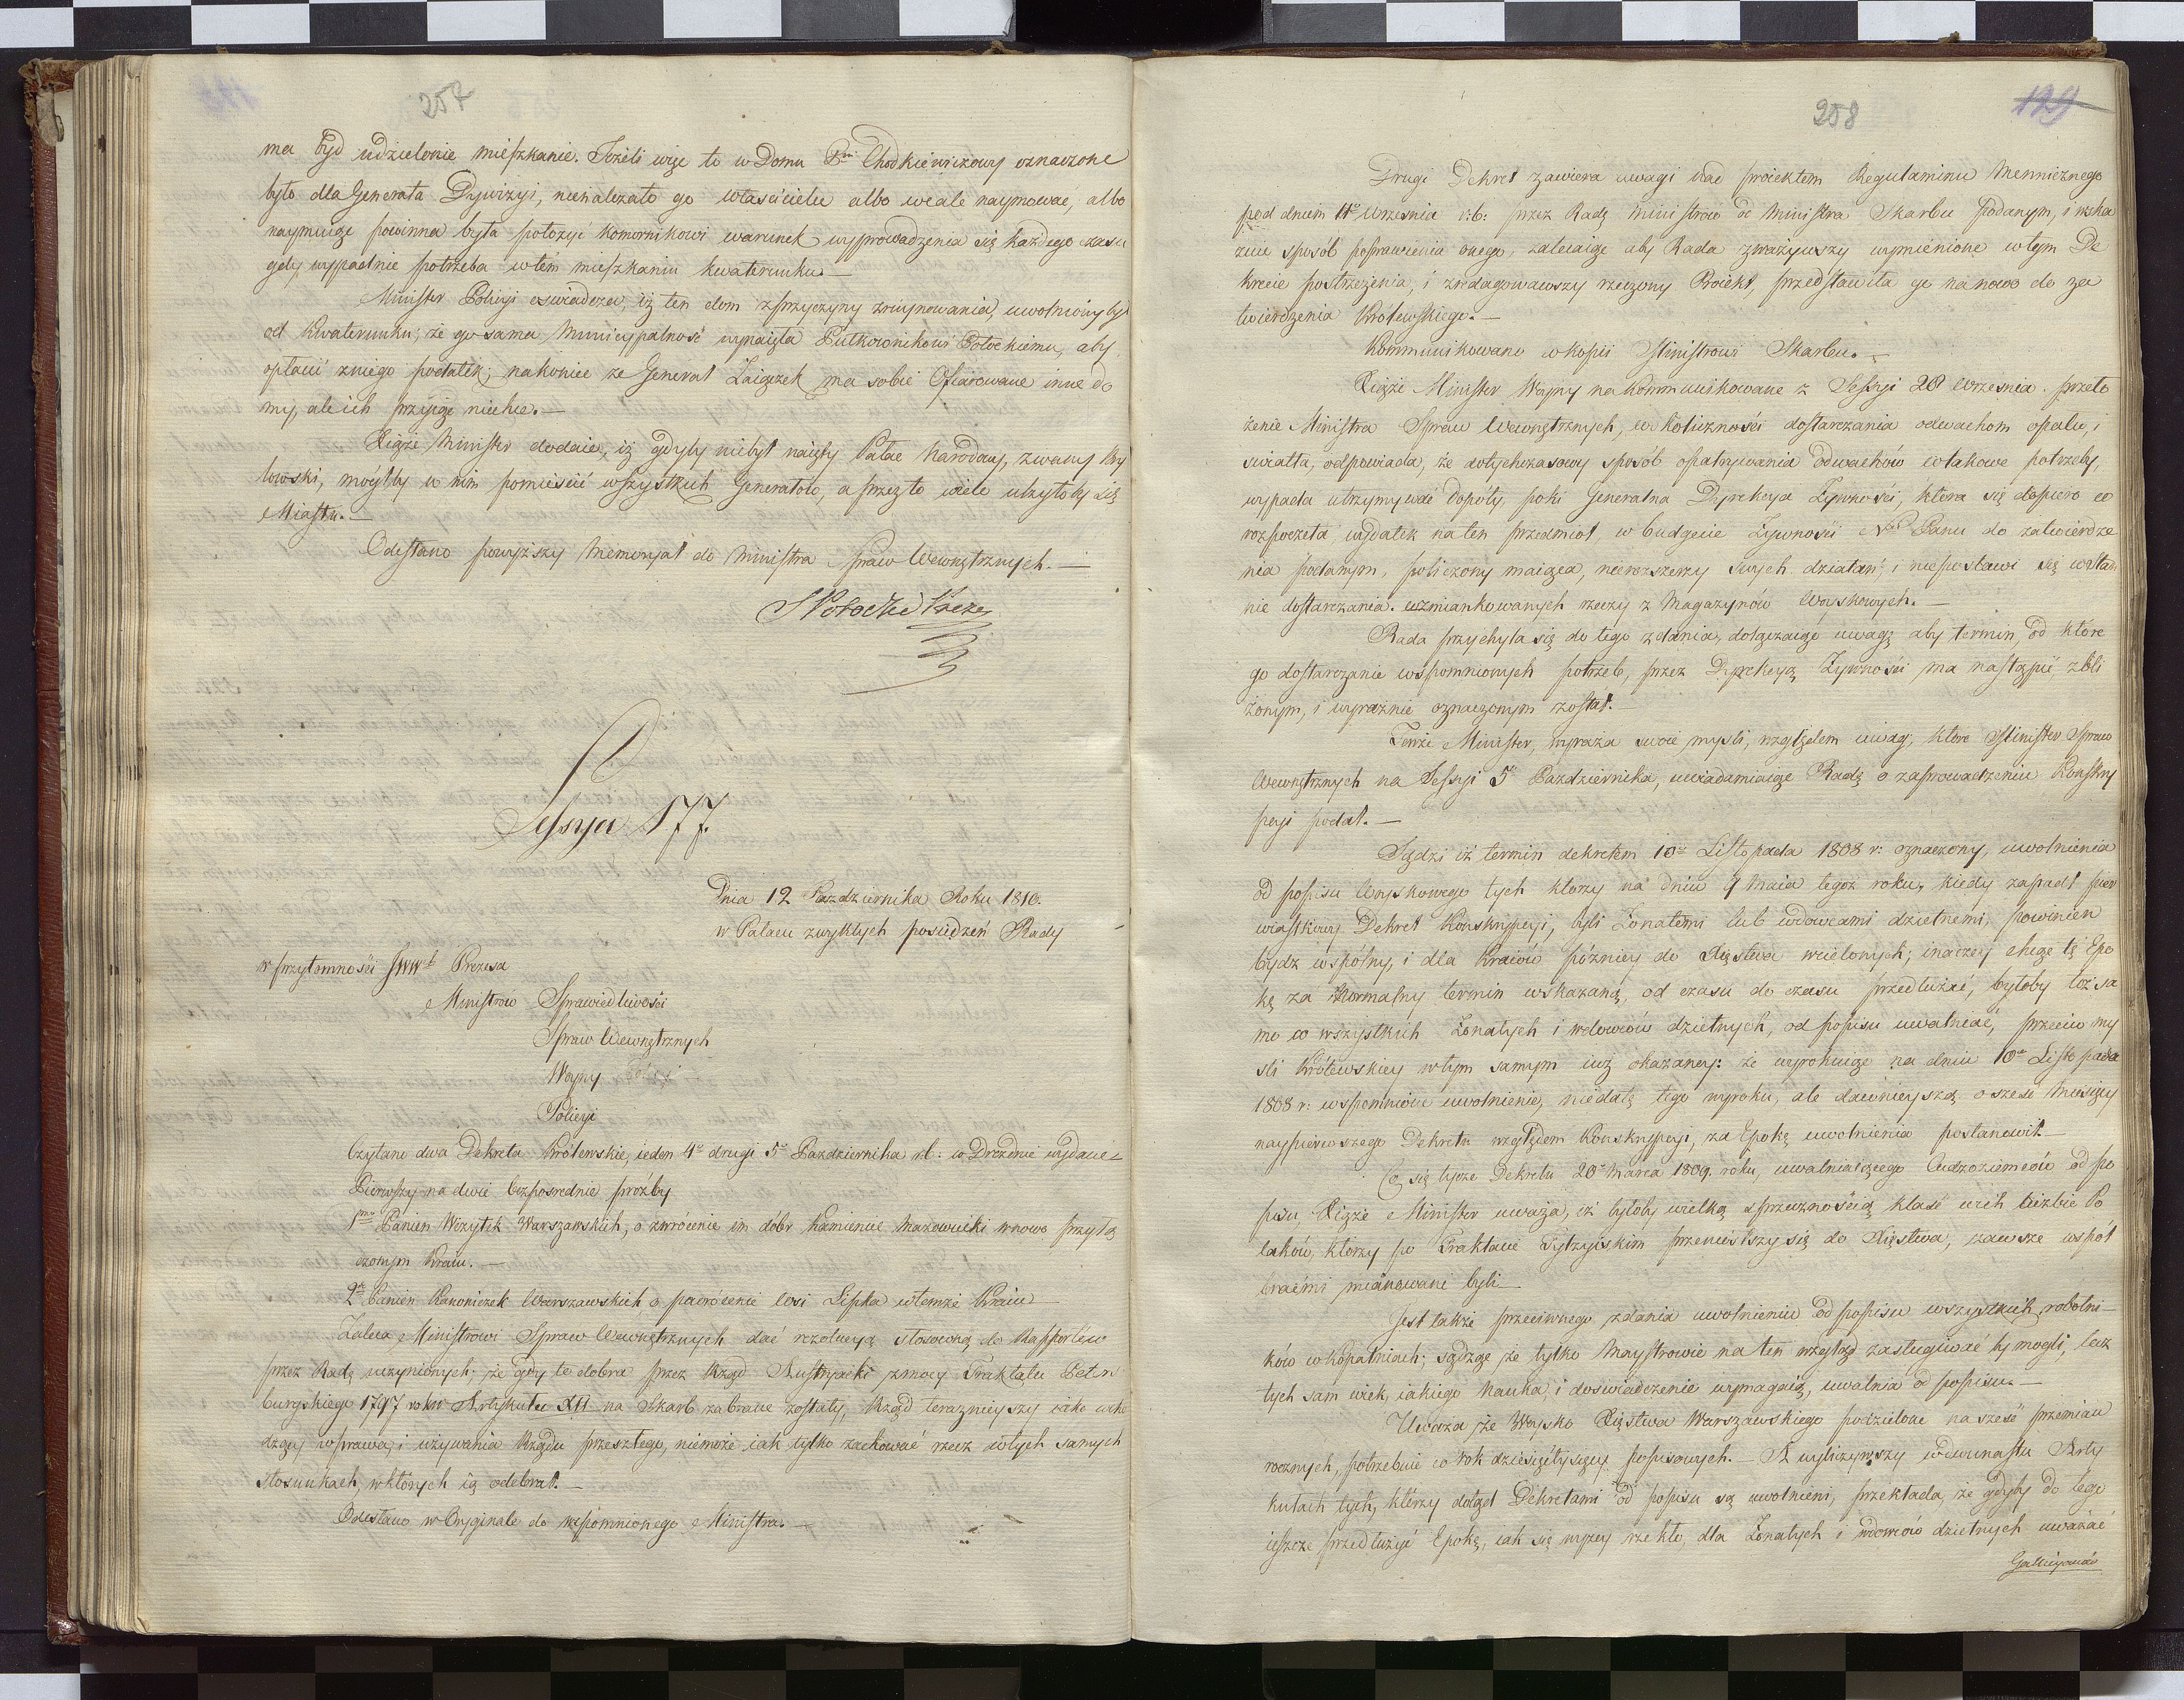 257
ma być udzielonie mieszkanie. Jeżeli więc to w Domu Pni Chodkiewiczowy oznaczone
było dla Generała Dywizyi, nienależało go właścicielce albo wcale naymować, albo
naymuiąc powinna była położyć komornikowi warunek wyprowadzenia się każdego czasu
gdy wypadnie potrzeba w tém mieszkaniu kwaterunku.—
Minister Policyi oswiadcza, iż ten dom z przyczyny zruynowania, uwolniony był
od Kwaterunku; że go sama Municypalność wynaięła Pułkownikowi Potockiemu, aby
opłacić z niego podatek; nakoniec że Generał Zaiączek ma sobie Ofiarowane inne do
my, ale ich przyiąć niechce.—
Xiąże Minister dodaie, iż gdyby niebył naięty Pałac Narodowy, zwany Bry
lowski, mógłby w nim pomieścić wszystkich Generałów, a przez to wiele ulżyłoby się
Miastu.—
Odesłano powyższy Memoryał do Ministra Spraw Wewnętrznych.—
S Potocki Prezes
Sessya 177.
Dnia 12 Pazdziernika Roku 1810.
w Pałacu zwykłych posiedzeń Rady
w przytomności JWW Prezesa
Ministrów Sprawiedliwości
Spraw Wewnętrznych
Woyny
Policyi
Czytano dwa Dekreta Królewskie, ieden 4o drugi 5o Pazdziernika r.b: w Dreznie wydane
Pierwszy na dwie bezposrednie proźby
1mo Panien Wizytek Warszawskich, o zwrócenie im dóbr Kamieniec Mazowiecki w nowo przyłą
czonym Kraiu.—
2do Panien Kanoniczek Warszawskich o powrócenie wsi Lipka w temże Kraiu
Zaleca Ministrowi Spraw Wewnętrznych dać rezolucyą stosowną do Rapportów
przez Radę uczynionych; że gdy te dobra przez Rząd Austryacki z mocy Traktatu Peters
burgskiego 1797 roku Artykułu XII na Skarb zabrane zostały, Rząd terazniejszy iako wcho
dzący w prawa, i używania Rządu przeszłego, niemoże iak tylko zachować rzecz w tych samych
stosunkach, w których ią odebrał.—
Odesłano w Oryginale do wspomnionego Ministra.—
258
129
Drugi Dekret zawiera uwagi nad proiektem Regulaminu Mennicznego
pod dniem 11o Wrzesnia r:b: przez Radę Ministrów do Ministra Skarbu podanym, i wska
zuie sposób poprawienia onego, zalecaiąc aby Rada zważywszy wymienione w tym De
krecie postrzeżenia, i zredagowawszy rzeczony Proiekt, przedstawiła go na nowo do za
twierdzenia Królewskiego.—
Kommunikowano w kopii Ministrowi Skarbu.—
Xiąże Minister Woyny na kommunikowane z Sessyi 28 Wrzesnia przeło
żenie Ministra Spraw Wewnętrznych, w okoliczności dostarczania odwachom opału, i
swiatła, odpowiada, że dotychczasowy sposób opatrywania Odwachów w takowe potrzeby,
wypada utrzymywać dopóty, poki Generalna Dyrekcya Żywności, która się dopiero co
rozpoczęta, wydatek na ten przedmiot, w budgecie Żywności Nmu Panu do zatwierdze
nia podanym, policzony maiąca, nierozszerzy swych działań, i niepostawi się w sta
nie dostarczania wzmiankowanych rzeczy z Magazynów Woyskowych.—
Rada przychyla się do tego zdania, dołączaiąc uwagę aby termin, od które
go dostarczanie wspomnionych potrzeb, przez Dyrekcyą Żywności ma nastąpić zbli
żonym, i wyraźnie oznaczonym został.—
Tenże Minister, wyraża swoie mysli, względem uwag, które Minister Spraw
Wewnętrznych na Sessyi 5 Pazdziernika, uwiadamiaiąc Radę o zaprowadzeniu Konskry
pcyi podał.—
Sądzi iż termin dekretem 10o Listopada 1808 r: oznaczony, uwolnienia
od popisu Woyskowego tych ktorzy na dniu 9 Maia tegoż roku, kiedy zapadł pier
wiastkowy Dekret Konskrypcyi, byli Żonatemi lub wdowcami dzietnemi, powinien
bydz wspólny, i dla Kraiów później do Xięstwa wcielonych; inaczej chcąc tę Epo
kę za Normalny termin wskazaną, od czasu do czasu przedłużać, byłoby toż sa
mo co wszystkich Żonatych i wdowców dzietnych, od popisu uwalniać, przeciw my
sli Królewskiey w tym samym iuż okazaney: że wyrokuiąc na dniu 10o Listopada
1808 r: wspomnione uwolnienie, niedatę tego wyroku, ale dawnieyszą o szesć Miesięcy
naypierwszego Dekretu względem Konskrypcyi, za Epokę uwolnienia postanowił.—
Co się tycze Dekretu 20o Marca 1809. roku, uwalniaiącego Cudzoziemców od po
pisu, Xiąże Minister uważa, iż byłoby wielką sprzecznością kłasć w ich liczbie Po
laków, którzy po Traktacie Tylżyckim przenieśli się do Xięstwa, zawsze współ
braćmi mianowani byli.—
Jest także przeciwnego zdania uwolnieniu od popisu wszystkich robotni-
ków w kopalniach; sądząc że tylko Maystrowie na ten wzgląd zasługiwać by mogli, lecz
tych sam wiek, iakiego Nauka, i doswiadczenie wymagaią, uwalnia od popisu.—
Uważa że Woysko Xięstwa Warszawskiego podzielone na szesć przemian
rocznych, potrzebuie co rok dziesięć tysięcy popisowych.— A wyliczywszy w dwunastu Arty
kułach tych, którzy dotąd Dekretami od popisu są uwolnieni, przekłada, że gdyby do tego
ieszcze przedłużyć Epokę, iak się wyżey rzekło, dla Żonatych i wdowców dzietnych uważać
Gallicyanów